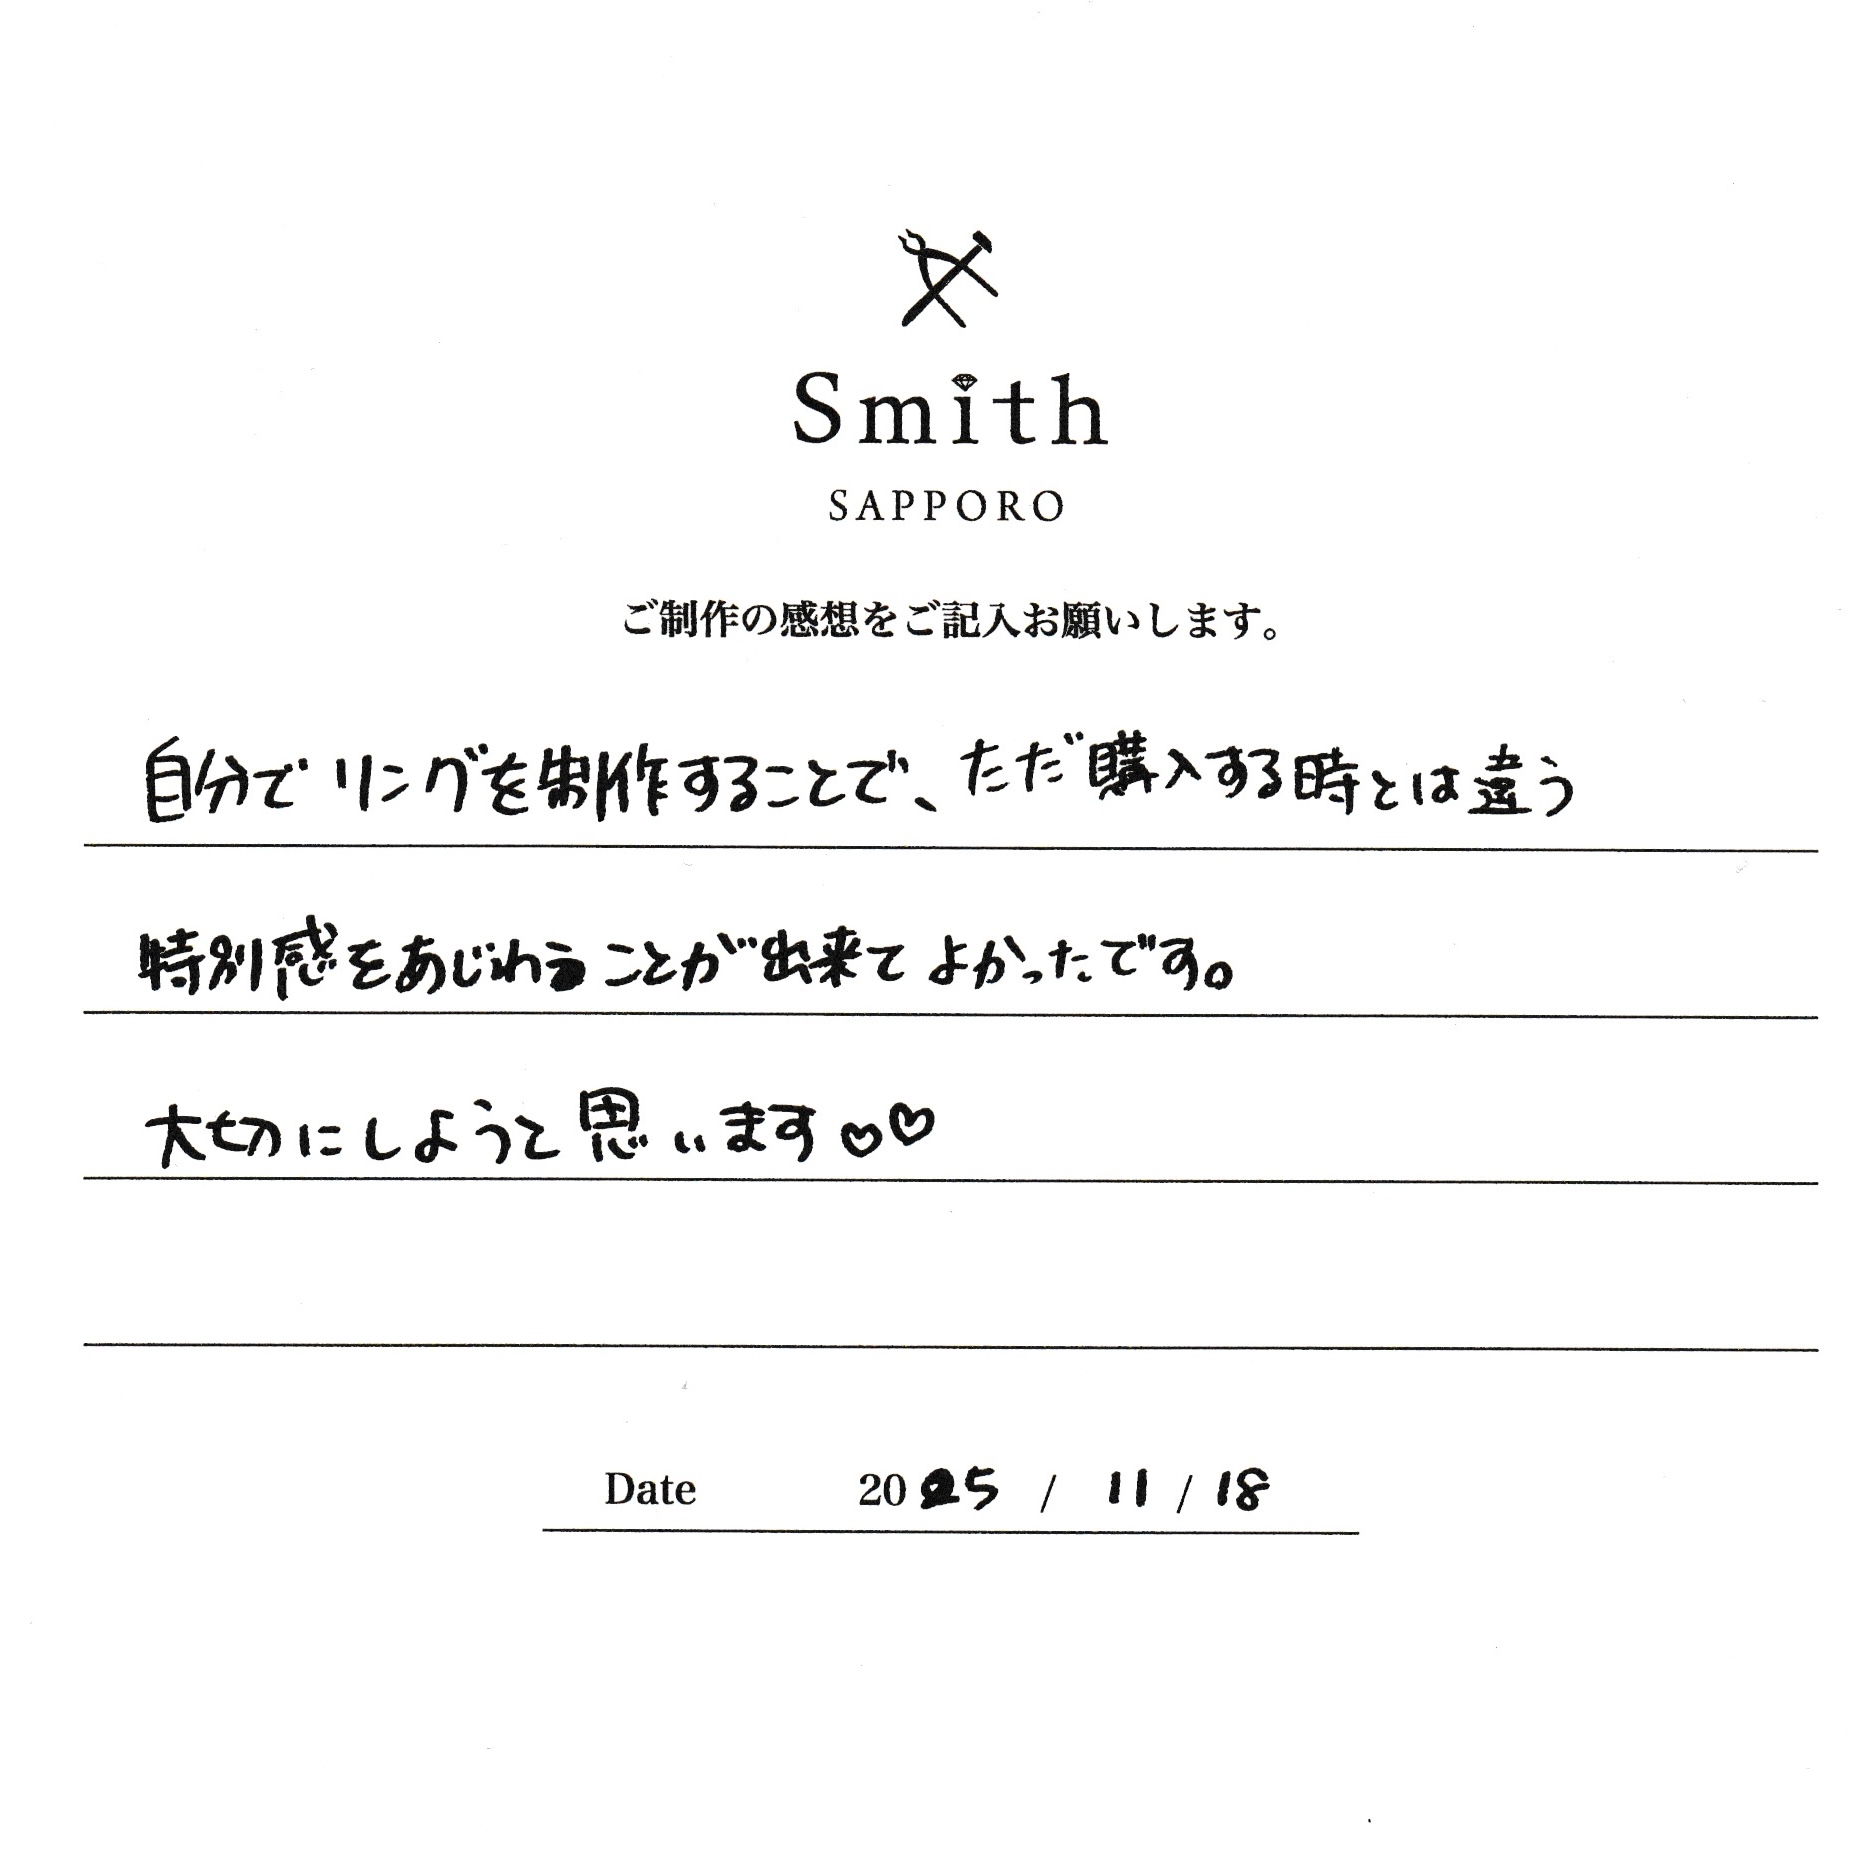 Smith
SAPPORO
ご制作の感想をご記入お願いします。
自分でリングを制作することで、ただ購入する時とは違う
特別感をあじわうことが出来てよかったです。
大切にしようと思います♡♡
Date 2025 / 11 / 18